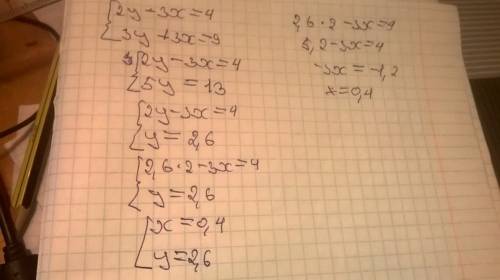 2y-3x=4
3y+3x=9
2y-3x=4
5y=13
2y-3x=4
y=2,6
2,6·2-3x=4
y=2,6
x=0,4
y=2,6
2,6·2-3x=4
5,2-3x=4
-3x=-1,2
x=0,4